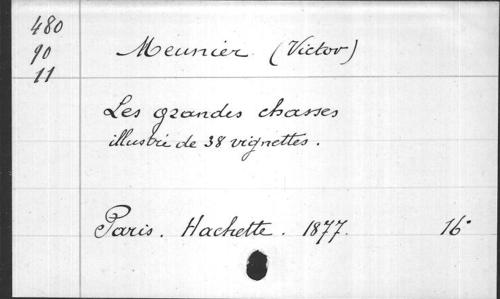 480
90
11
Meunier (Victor)
Les grandes chasses
illustré de 38 vignettes.
Paris. Hachette. 1877. 16°